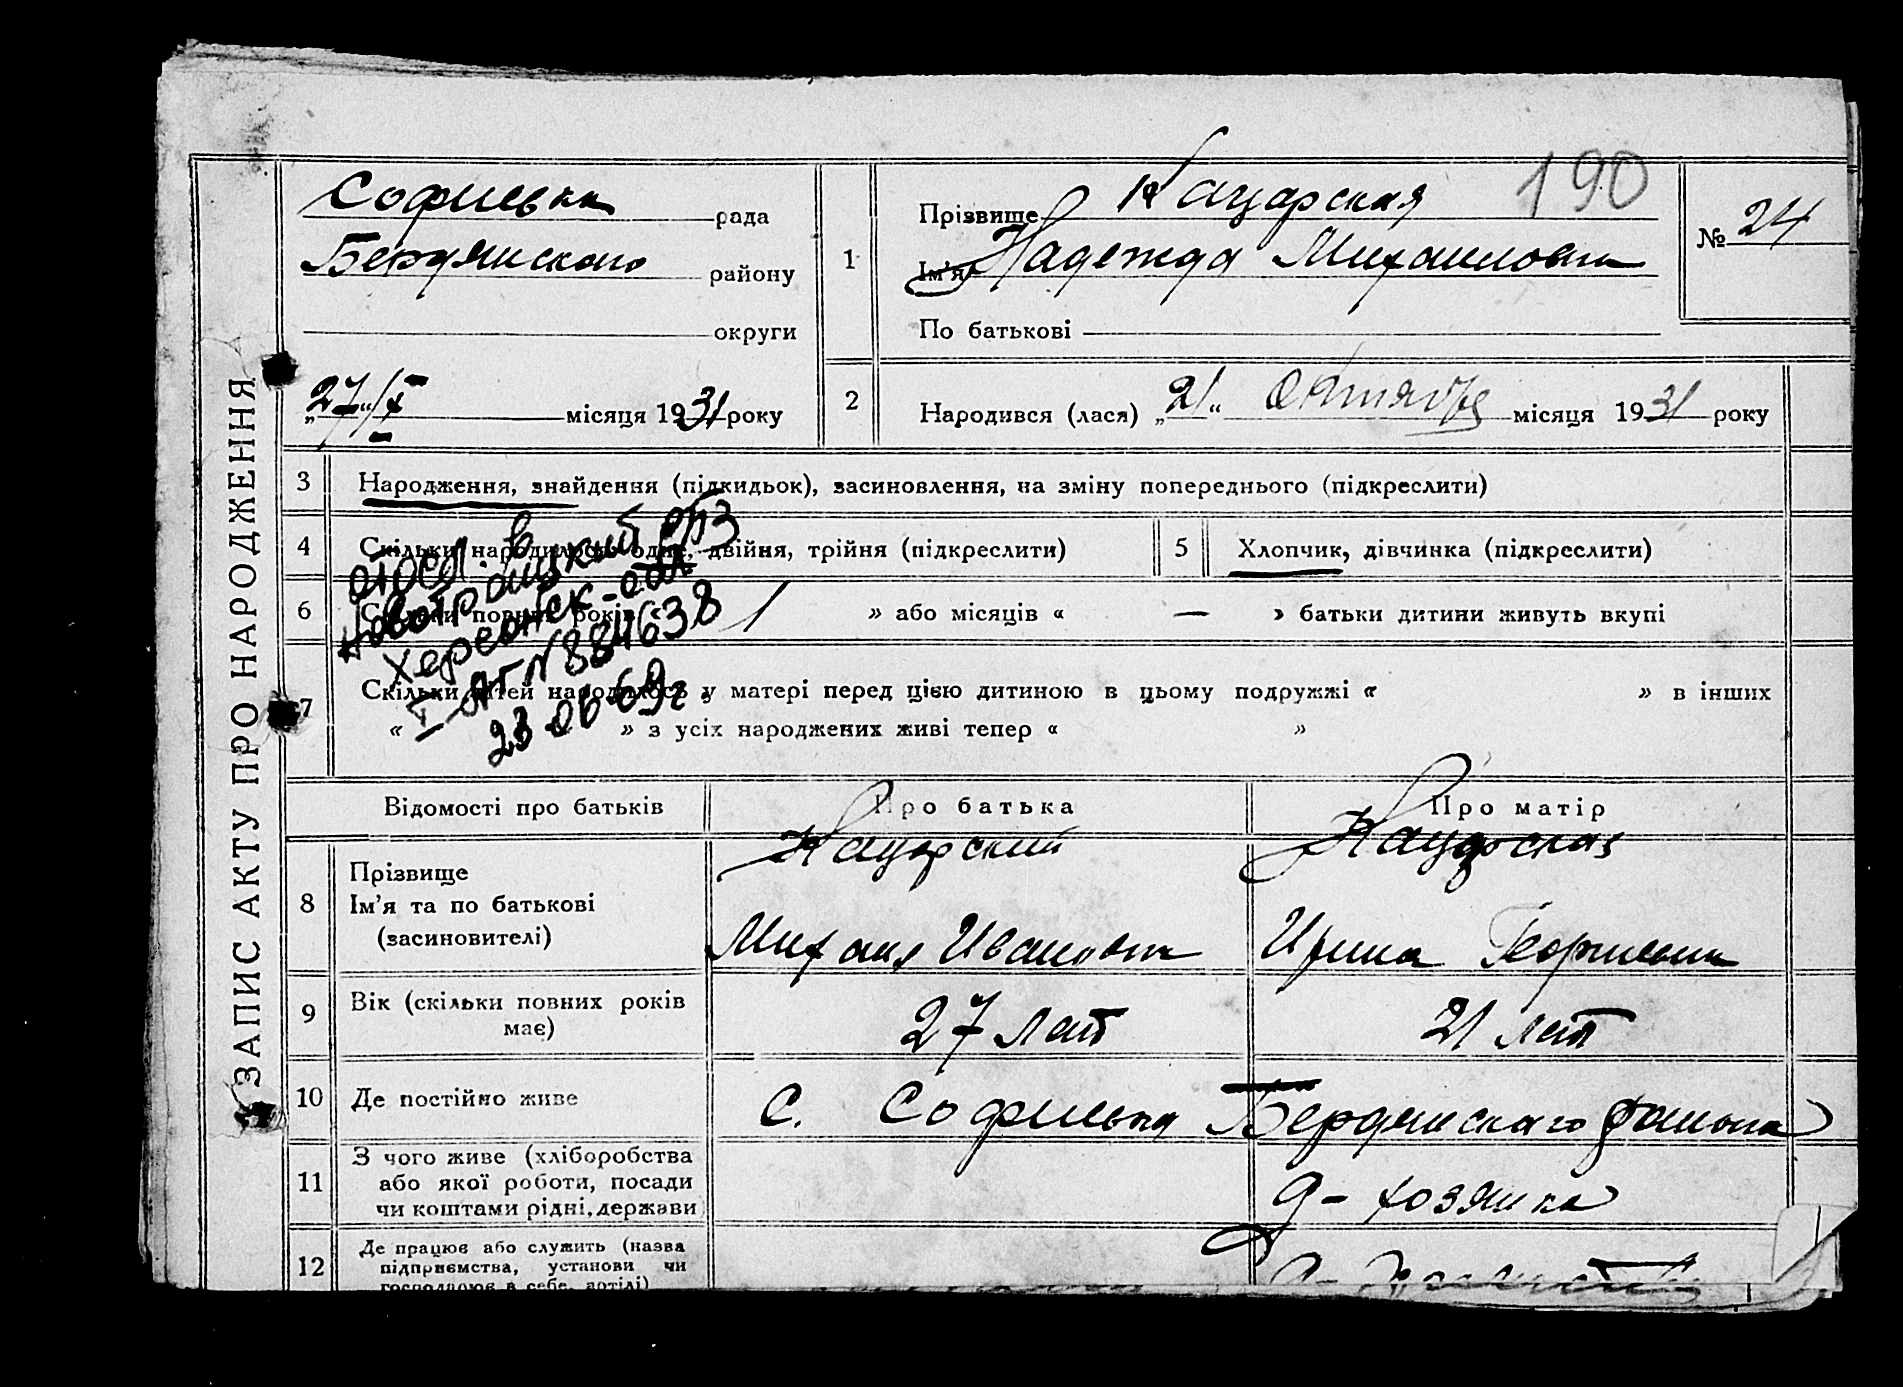 ЗАПИС АКТУ ПРО НАРОДЖЕННЯ
Софиевка рада
Бердянского району
округи
„27“/X місяця 1931 року
1
Прізвище Кацарская
Ім'я Надежда Михаиловна
По батькові
190
№ 24
2
Народився (лася) „21“ Октября місяця 1931 року
3 Народження, знайдення (підкидьок), засиновлення, на зміну попереднього (підкреслити)
4 Скільки народилось одне, двійня, трійня (підкреслити)
5 Хлопчик, дівчинка (підкреслити)
6 Скільки повних років « 1 » або місяців « — » батьки дитини живуть вкупі
7 Скільки дітей народилось у матері перед цією дитиною в цьому подружжі « » в інших
« » з усіх народжених живі тепер « »
отосл. в
Новотроицкий
Херсонск-обл
I-ЯГ № 884638
23-06-69г.
Відомості про батьків
Про батька
Про матір
8
Прізвище
Ім'я та по батькові
(засиновителі)
Кацарский
Михаил Иванович
Кацарская
Ирина Георгиевна
9 Вік (скільки повних років
має)
27 лет
21 лет
10 Де постійно живе
с. Софиевка Бердянскаго района
11
З чого живе (хліборобства
або якої роботи, посади
чи коштами рідні, держави
д-хозяйка
12
Де працює або служить (назва
підприємства, установи чи
господарює в себе, артілі)